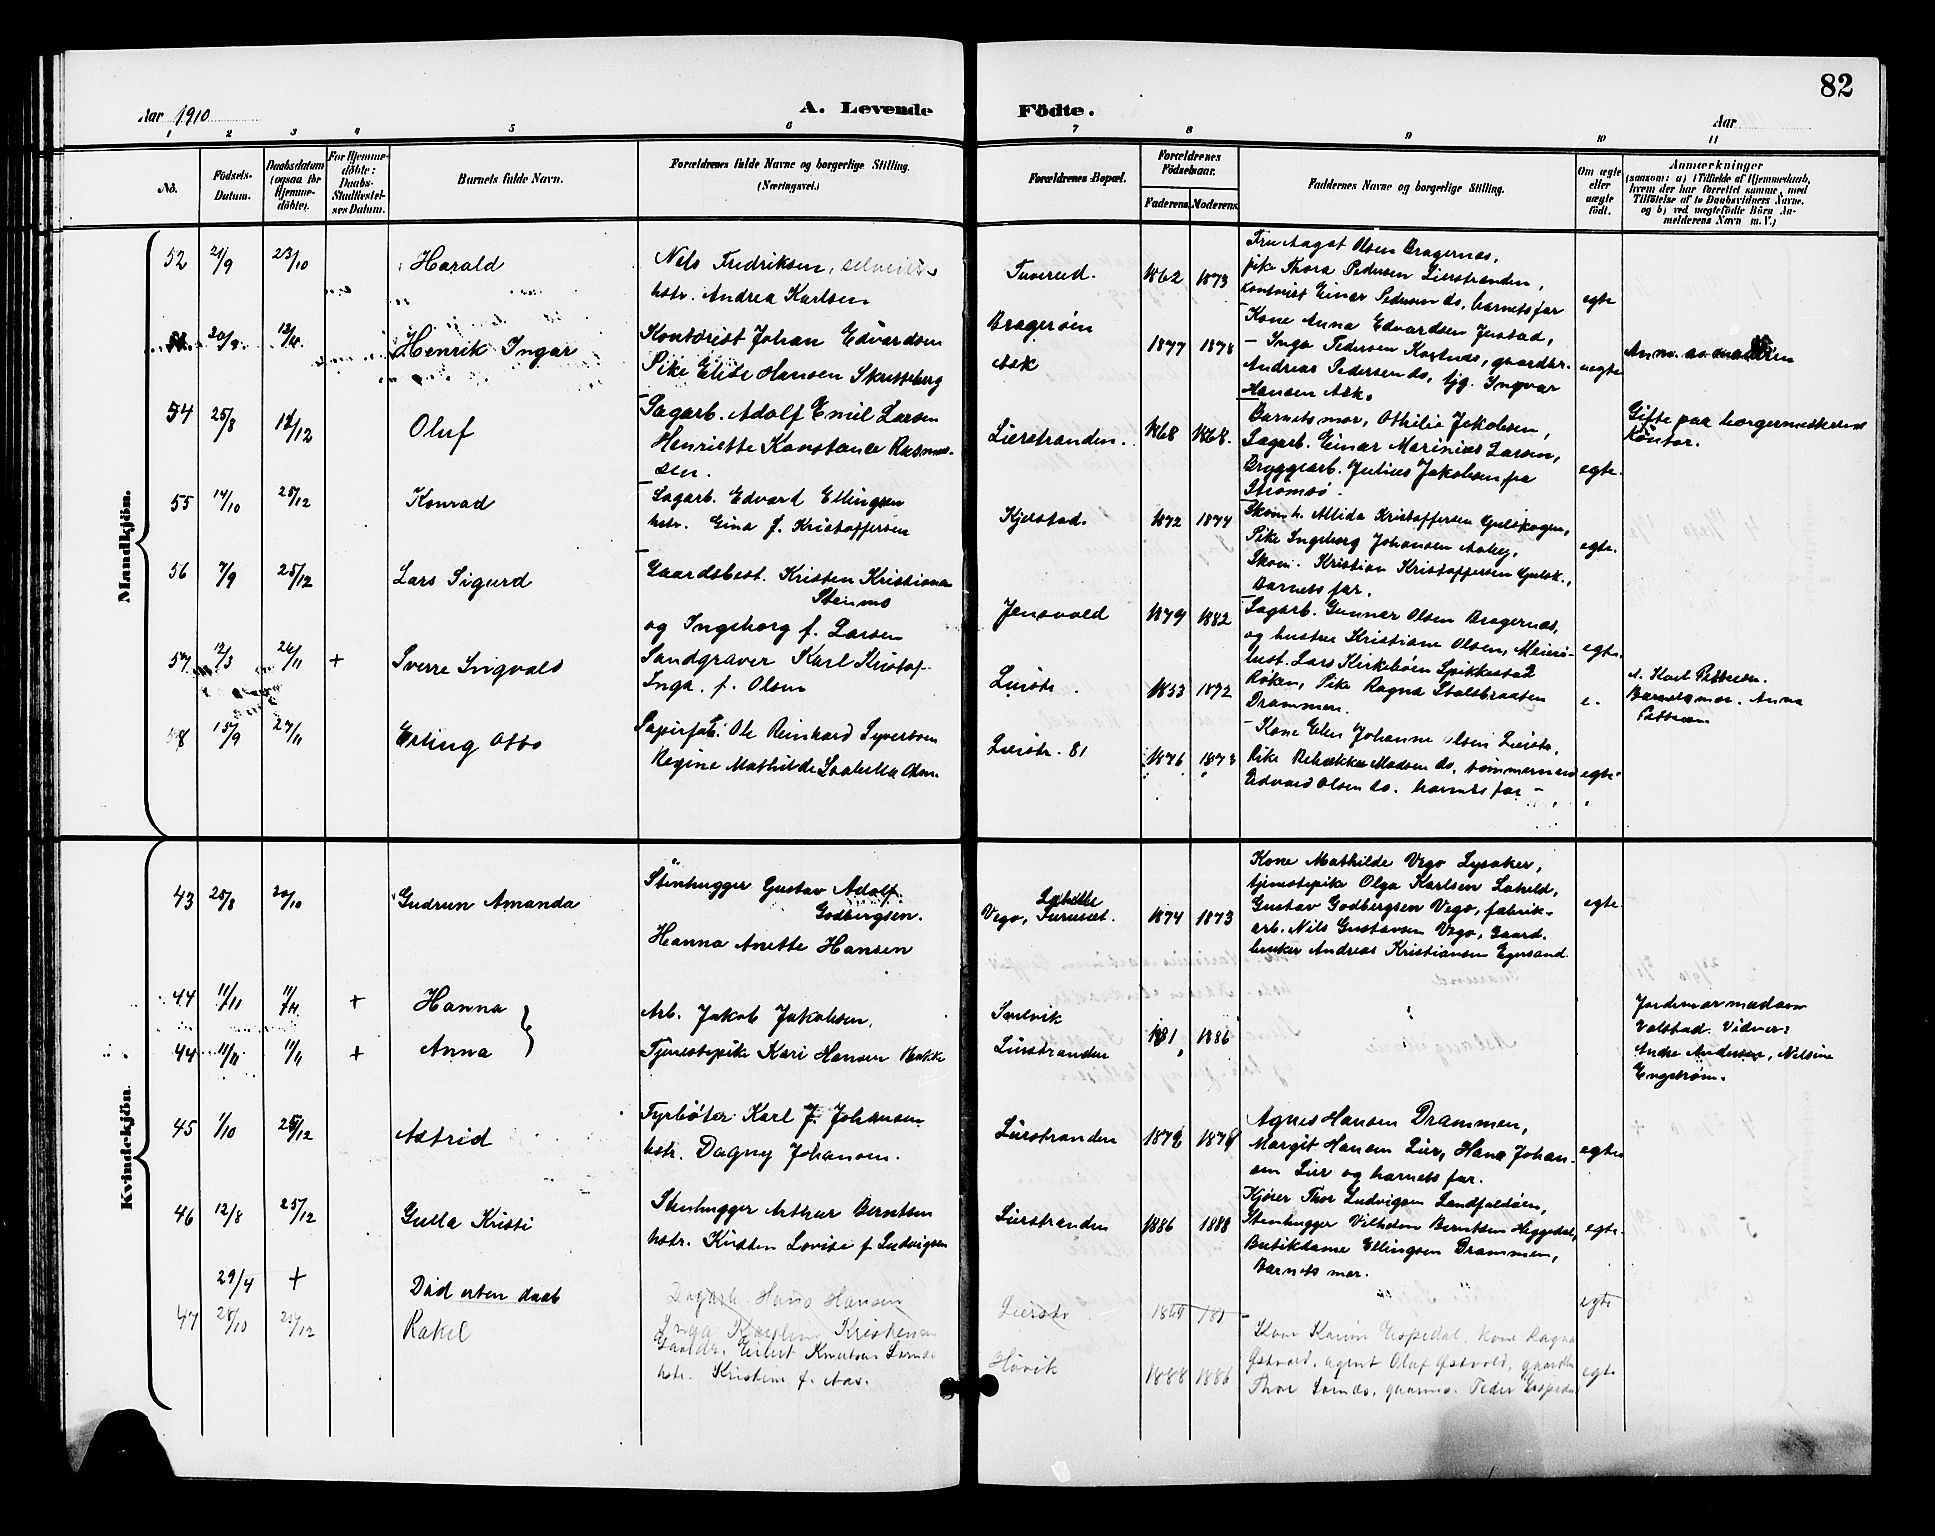 82
Aar 1910
A. Levende
Födte.
Aar
1 2 3 4 5 6 7 8 9 10 11
No.
Födsels-
Datum.
Daabsdatum
(ogsaa for
Hjemme-
döbte).
For Hjemme-
döbte:
Daabs-
Stadfæstel-
ses Datum.
Barnets fulde Navn.
Forældrenes fulde Navne og borgerlige Stilling.
(Næringsvei.)
Forældrenes Bopæl.
Forældrenes
Födselsaar.
Faderens. Moderens.
Faddernes Navne og borgerlige Stilling.
Om ægte
eller
uægte
født.
Anmærkninger
(saasom: a) i Tilfælde af Hjemmedaab,
hvem der har forrettet samme, med
Tilföielse af to Daabsvidners Navne.
og b) ved uægtefödte Börn An-
melderens Navn m. V.)
Mandkjön.
52 21/9 23/10 Harald
Nils Fredriksen, selveier
hstr. Andrea Karlsen
Tuverud. 1862 1873
Fru Aagot Olsen Bragernes,
pike Thora Pedersen Lierstranden,
Kontorist Einar Pedersen do, barnets far
egte
20/9 Henrik Ingar
Kontorist Johan Edvardsen
Pike Elise Hansen
Bragerøen
Ask
1877 1878
Kone Anna Edvardsen
- Inga Pedersen gaardbr.
Andreas Pedersen do, tjg. Ingvar
Hansen Ask.
uegte
Anm. av
54 25/8 12/12 Oluf
Sagarb. Adolf Emil Larsen
Henriette Konstance Rasmus-
sen.
Lierstranden. 1868 1868.
Barnets mor, Othilie Jakobsen,
Sagarb. Einar Marinius Larsen,
Bryggearb. Julius Jakobsen fra
Strømsø.
egte.
Gifte paa borgermesterens
Kontor.
55 14/10 25/12 Konrad
Sagarb. Edvard Ellingsen
hstr. Gina f. Kristoffersen
Kjelstad. 1872 1874
Skom. h. Alida Kristoffersen Gulskogen,
Pike Ingeborg Johansen
Skom. Kristian Kristoffersen Gulsk.,
Barnets far.
egte.
56 7/9 25/12 Lars Sigurd
Gaardsbest. Kristen Kristiansen
Stenmo
og Ingeborg f. Larsen
Jensvold 1879 1882
Sagarb. Gunnar Olsen Bragernes,
og hustru Kristiane Olsen, Meieri-
best. Lars Kirkebøen Spikkestad
Røken, Pike Ragna Stalsbraaten
Drammen.
egte.
57 12/3 26/11 + Sverre Ingvald
Sandgraver Karl Kristof
Inga. f. Olsen
Lierstr. 1853 1872
e.
Barnets mor. Anna
58 15/9 27/11 Erling Otto
Papirfab. Ole Reinhard Syvertsen
Regine Mathilde
Lierstr. 81 1876 1873
- Kone Elen Johanne Olsen Lierstr.
Pike Rebekka Madsen do, tømmermand
Edvard Olsen do. barnets far -
egte
Kvindekjön.
43 25/8 20/10 Gudrun Amanda
Stenhugger Gustav Adolf
Godbergsen.
Hanna Anette Hansen
Vego, Furuset. 1874 1873
Kone Mathilde Vego Lysaker,
tjenestepike Olga Karlsen
Gustav Godbergsen Vego, fabrik-
arb. Nils Gustavsen Vego, Gaard-
bruker Andreas Kristiansen Egersand.
egte
44 11/11 11/11 + Hanna
Arb. Jakob Jakobsen,
44 11/11 11/11 + Anna
Tjenestepike Kari Hansen
Lierstranden 1881 1886
Jordemor madam
Valstad. Vidner:
Andre Andersen, Nilsine
Engstrøm.
45 1/10 25/12 Astrid
Fyrbøter Karl J. Johansen
hstr. Dagny Johansen.
Lierstranden
Agnes Hansen Drammen,
Margit Hansen Lier, Hans Johan-
sen Lier og barnets far.
egte
46 12/8 25/12 Gulla Kristi
Stenhugger Arthur Berntsen
hstr. Kirsten Lovise f. Ludvigsen
Lierstranden 1886 1888
Kjører Thor Ludvigsen Landfaldøen,
Stenhugger Vilhelm Berntsen Heggedal,
Butikdame Ellingsen Drammen,
Barnets mor.
egte.
29/4 + Død uten daab
Dagarb. Hans Hansen
Inga Karoline Kristensen
Lierstr. 1869
egte
47 28/10 25/12 Rakel
Gaardbr. Eilert Knutsen
hstr. Kristine f. Aas.
Høvik 1888 1886
Kone Karen Espedal, kone Ragna
Østvold, agent Olaf Østvold, gaardbr
Thor gaarms. Peder Espedal
egte